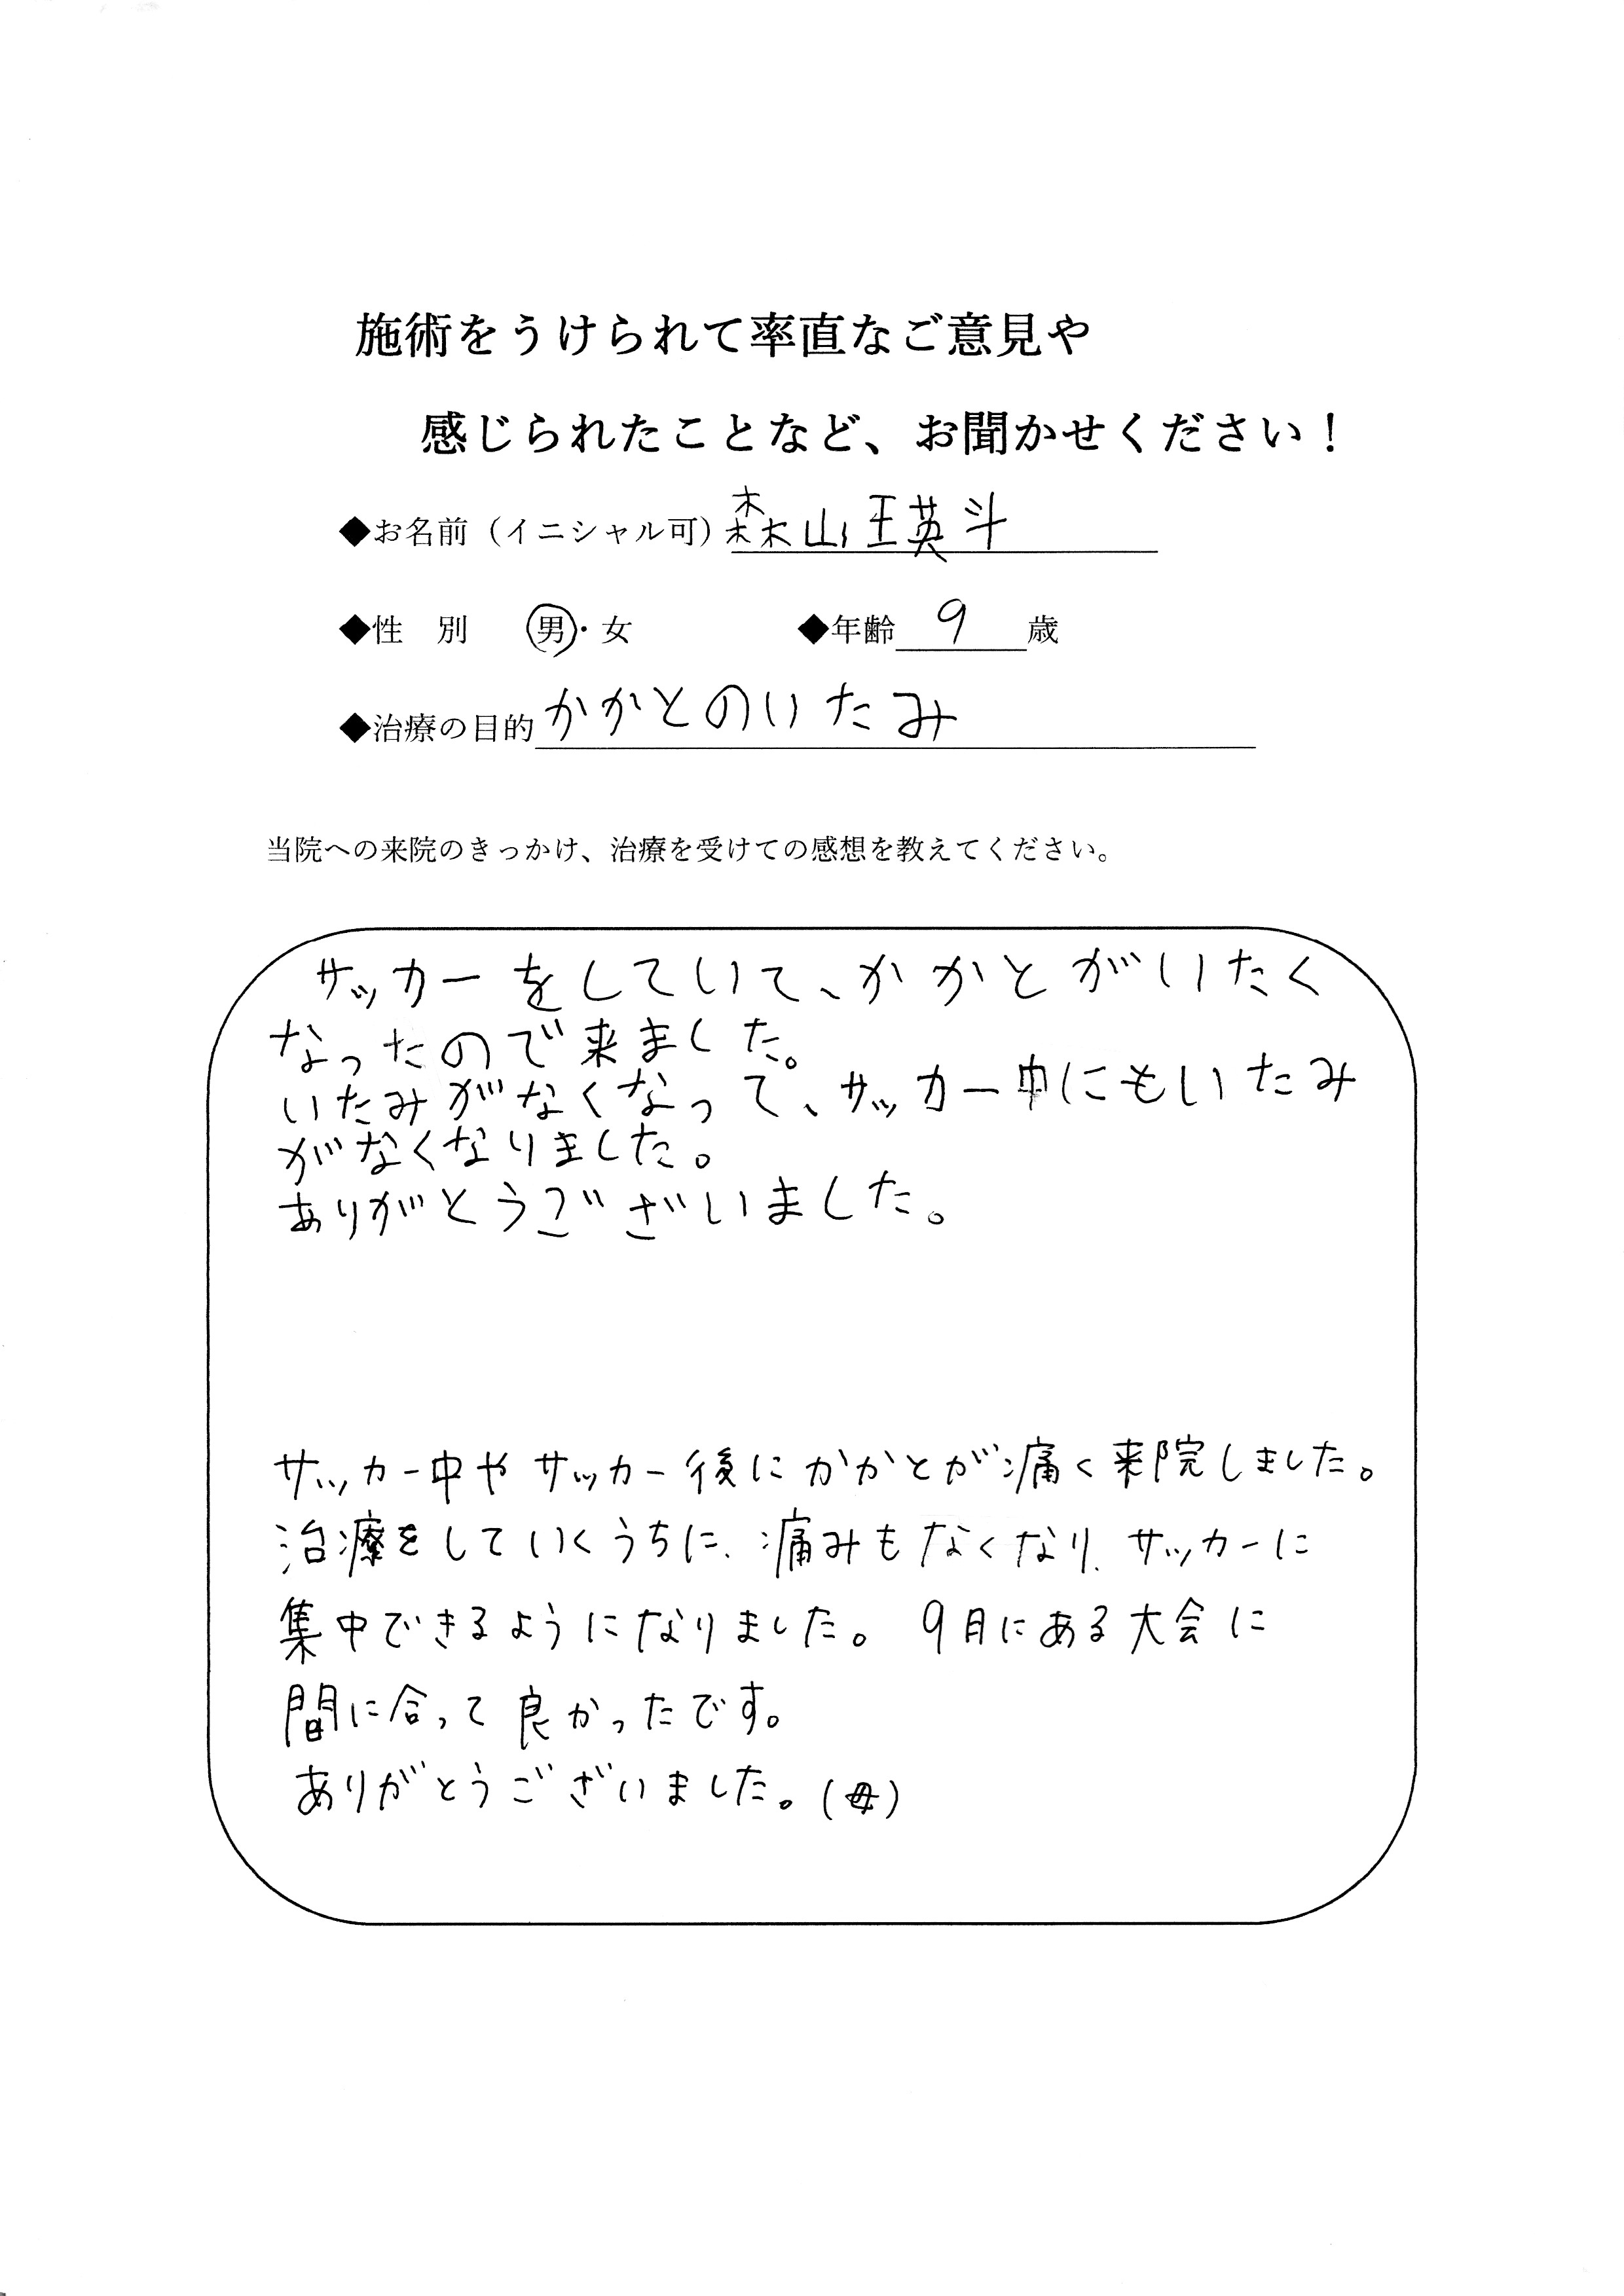 施術をうけられて率直なご意見や
感じられたことなど、お聞かせください！
◆お名前（イニシャル可）森山瑛斗
◆性　別　男・女　◆年齢 9 歳
◆治療の目的 かかとのいたみ
当院への来院のきっかけ、治療を受けての感想を教えてください。
サッカーをしていて、かかとがいたく
なったので来ました。
いたみがなくなって、サッカー中にもいたみ
がなくなりました。
ありがとうございました。
サッカー中やサッカー後にかかとが痛く来院しました。
治療をしていくうちに、痛みもなくなり、サッカーに
集中できるようになりました。9月にある大会に
間に合って良かったです。
ありがとうございました。(母)